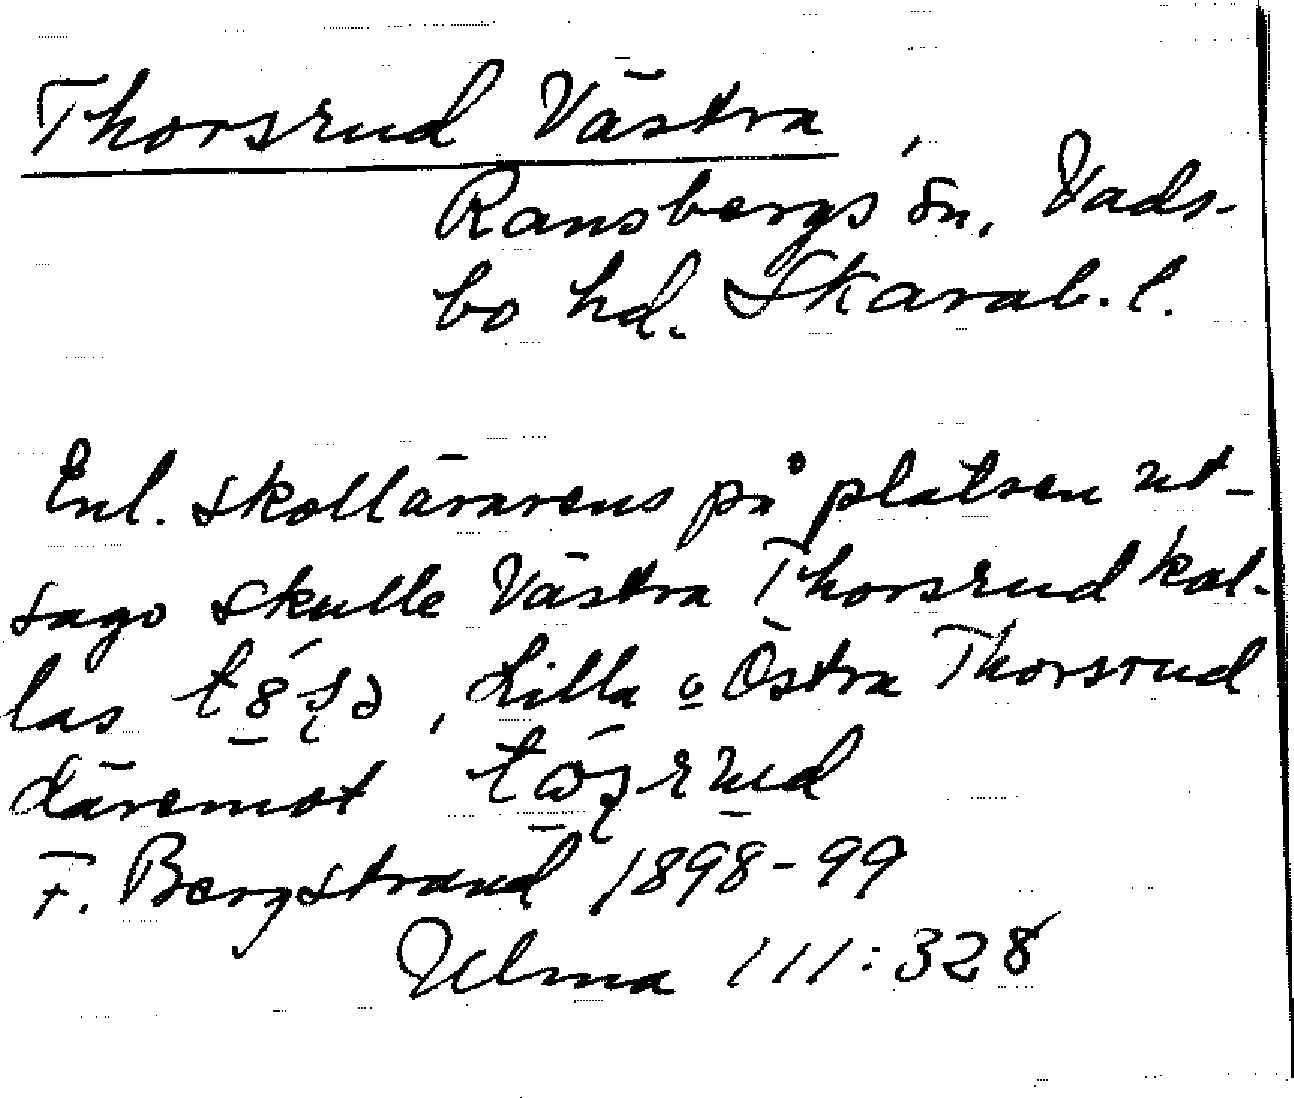 Thorsrud Västra,
Ransbergs sn, Vads-
bo hd. Skarab. l.
Enl. skollärarens på platsen ut-
sago skulle Västra Thorsrud kal-
las , Lilla o Östra Thorsrud
däremot
F. Bergstrand 1898-99
Ulma 111:328